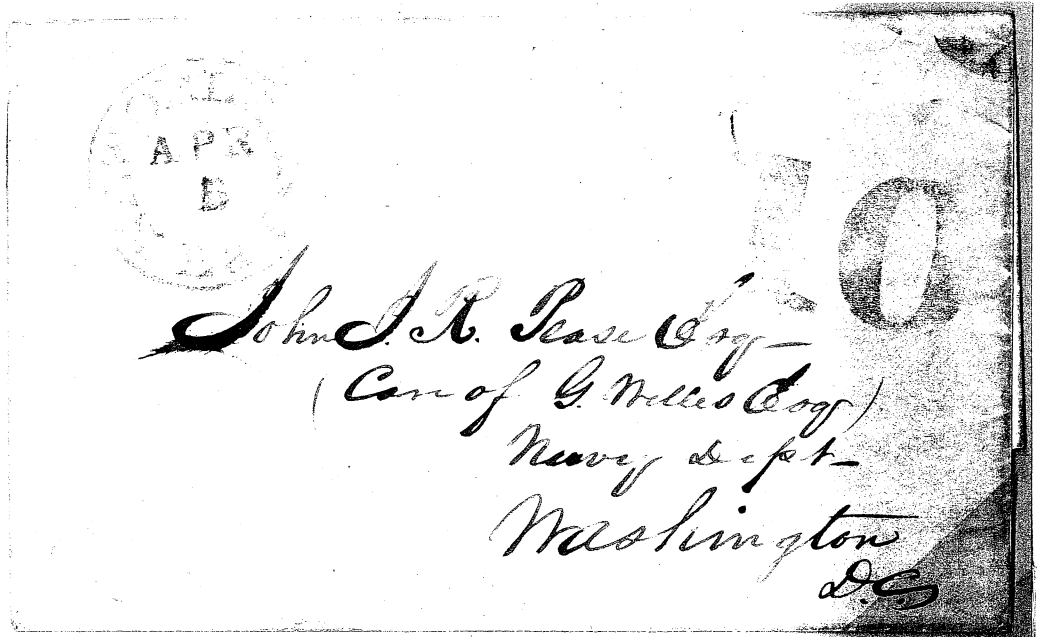 APR
10
John J. R. Pease Esq—
(Care of G. Welles Esq)
Navy Dept—
Washington
D.C.